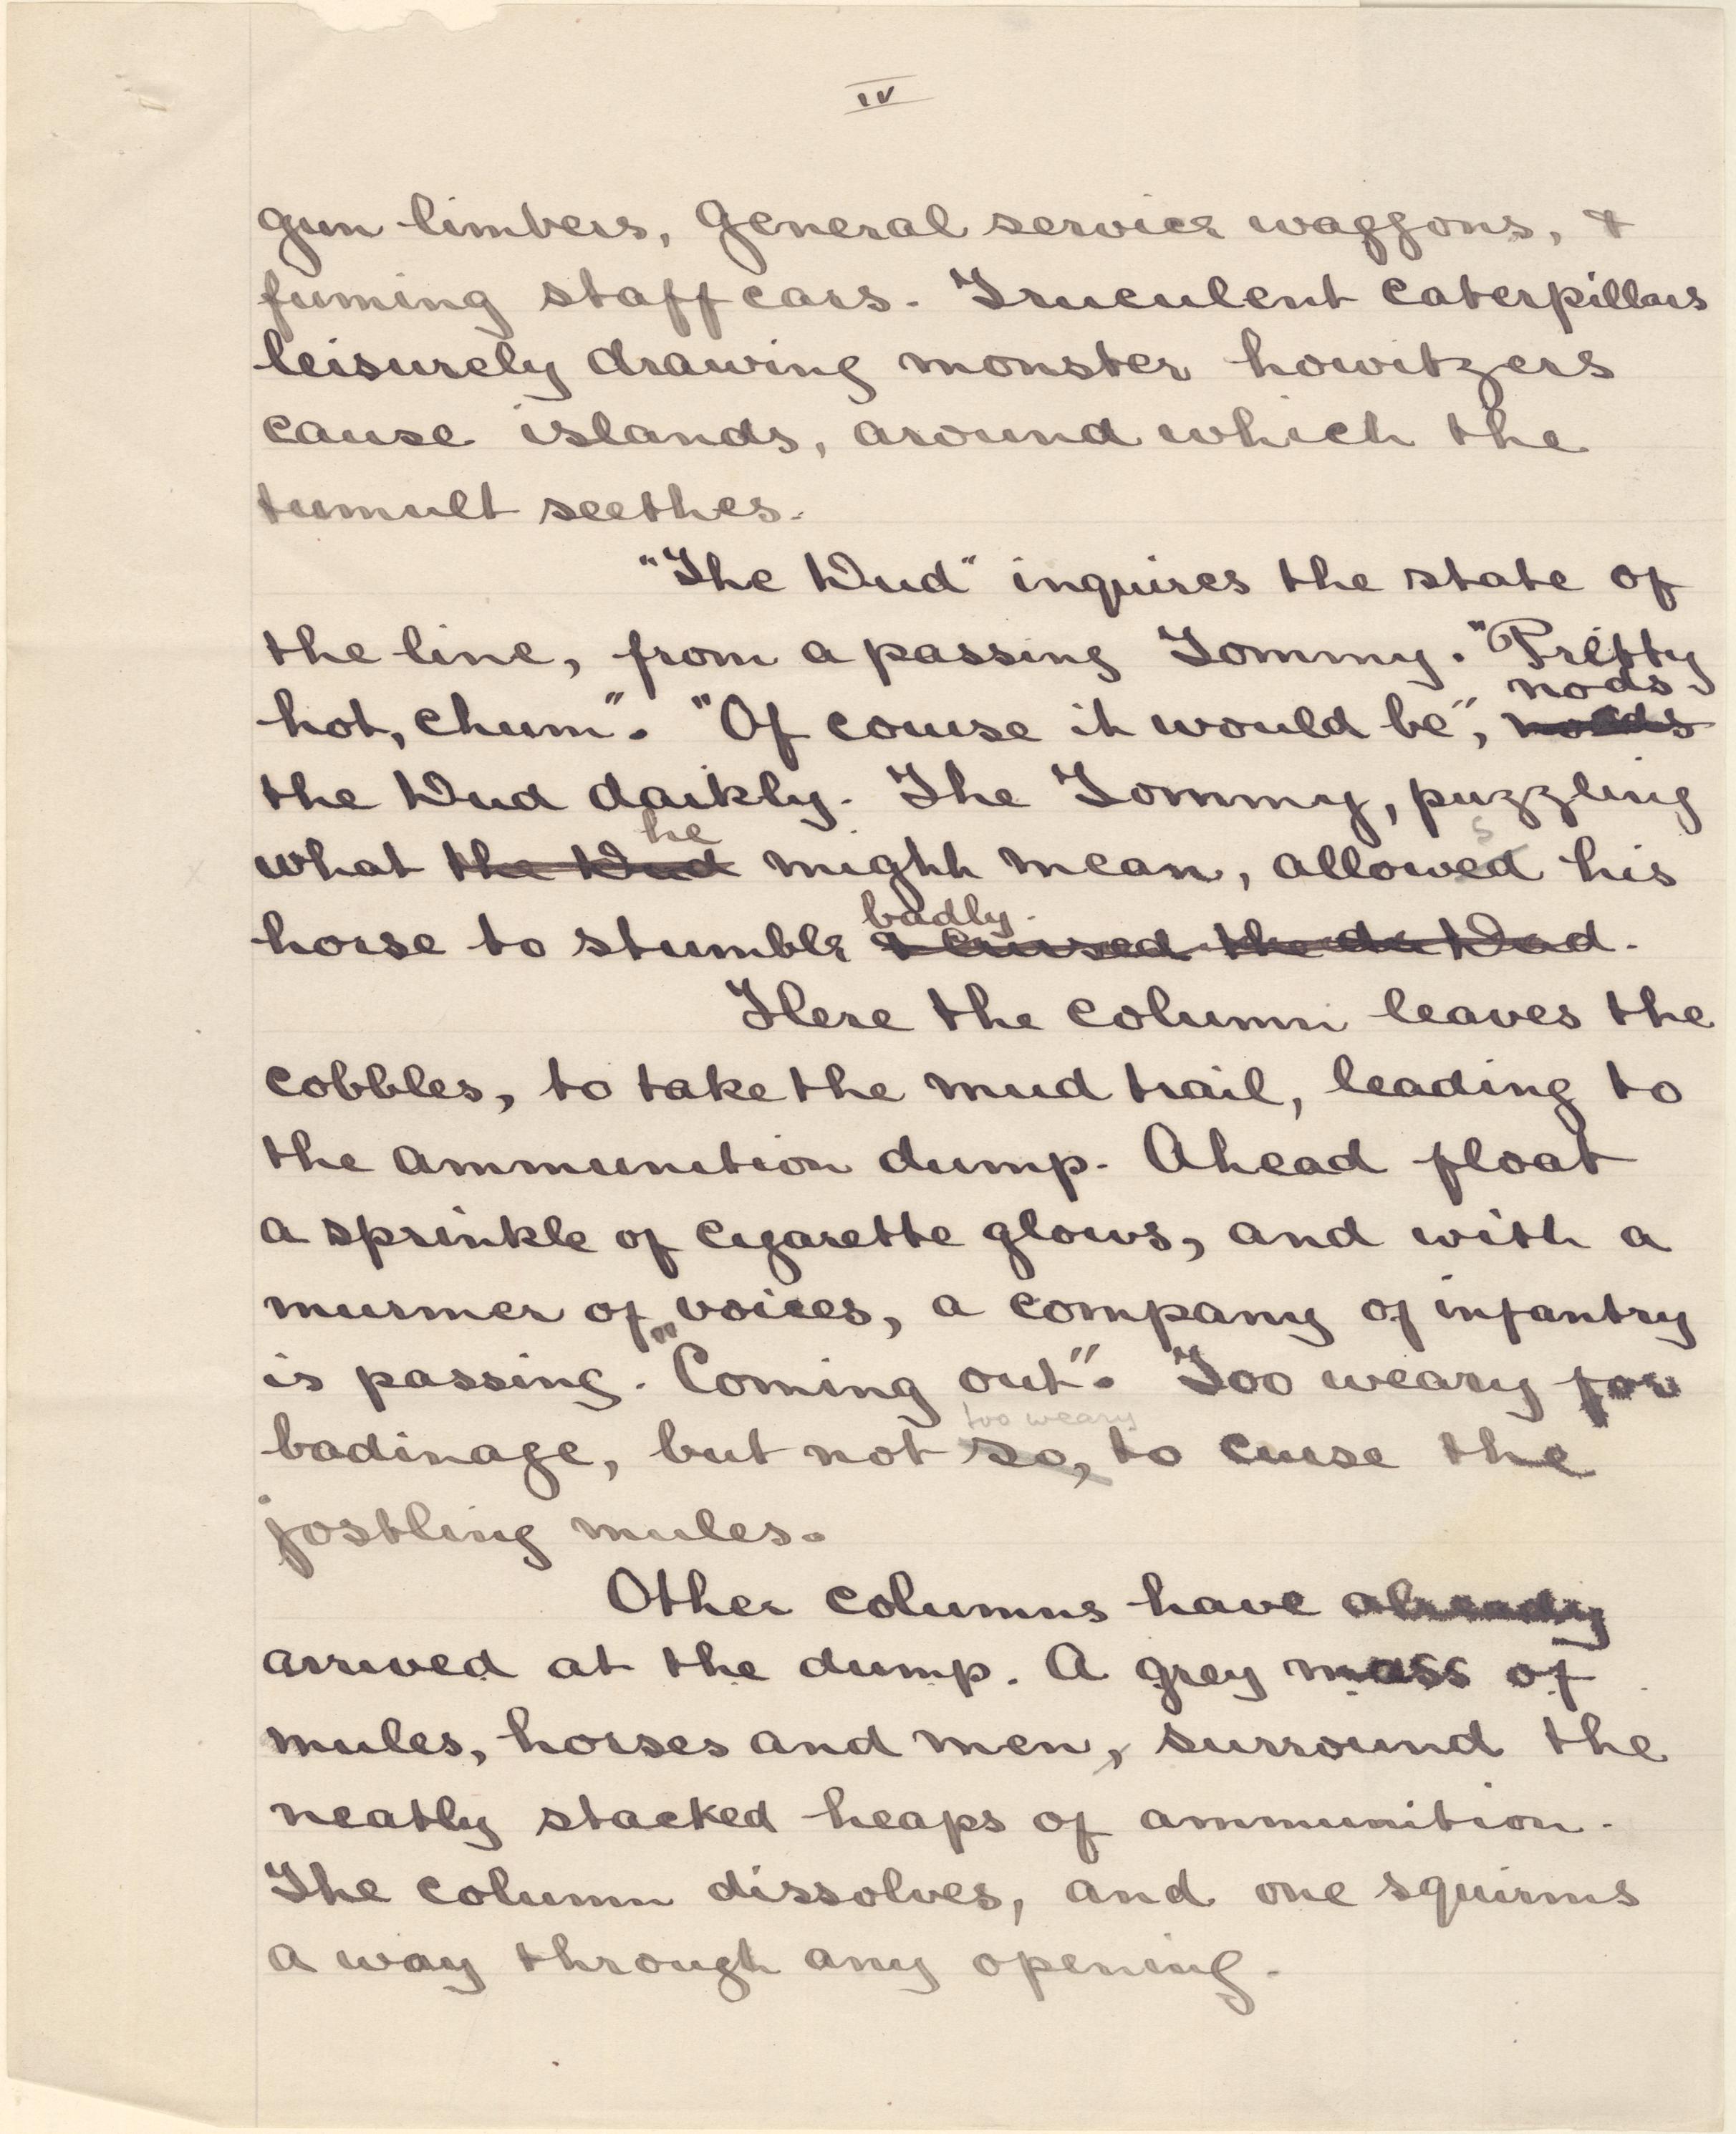 IV
gun limbers, General service waggons, &
fuming staff cars. Truculent caterpillars
leisurely drawing monster howitzers
cause islands, around which the
tumult seethes.
"The Dud" inquires the state of
the line, from a passing Tommy. "Pretty
nods
hot, chum". "Of course it would be",
the Dud darkly. The Tommy, puzzling
he
what the Dud might mean, allowed his
s
badly.
horse to stumble & cursed the Dud.
Here the column leaves the
cobbles, to take the mud trail, leading to
the ammunition dump. Ahead float
a sprinkle of cigarette glows, and with a
murmer of voices, a company of infantry
is passing. "Coming out". Too weary for
too weary
badinage, but not so, to curse the
jostling mules.
Other columns have already
arrived at the dump. A grey mass of
mules, horses and men, surround the
neatly stacked heaps of ammunition.
The column dissolves, and one squirms
a way through any opening.